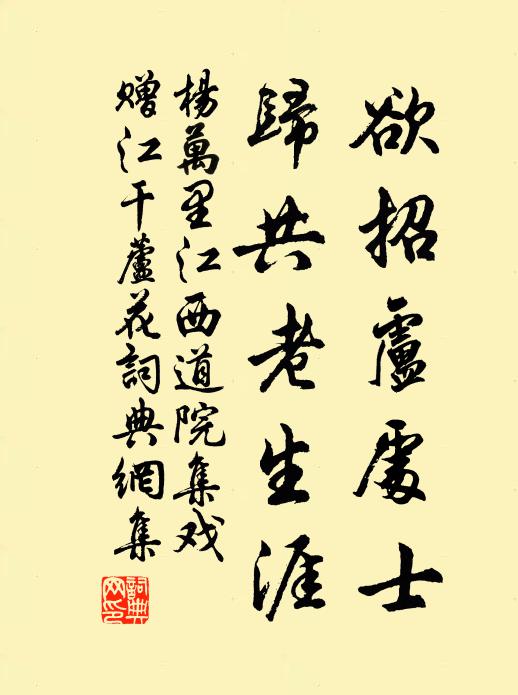 欲招盧處士
歸共老生涯
楊萬里江西道院集戏
贈江干蘆花詞典網集
詞典
网印